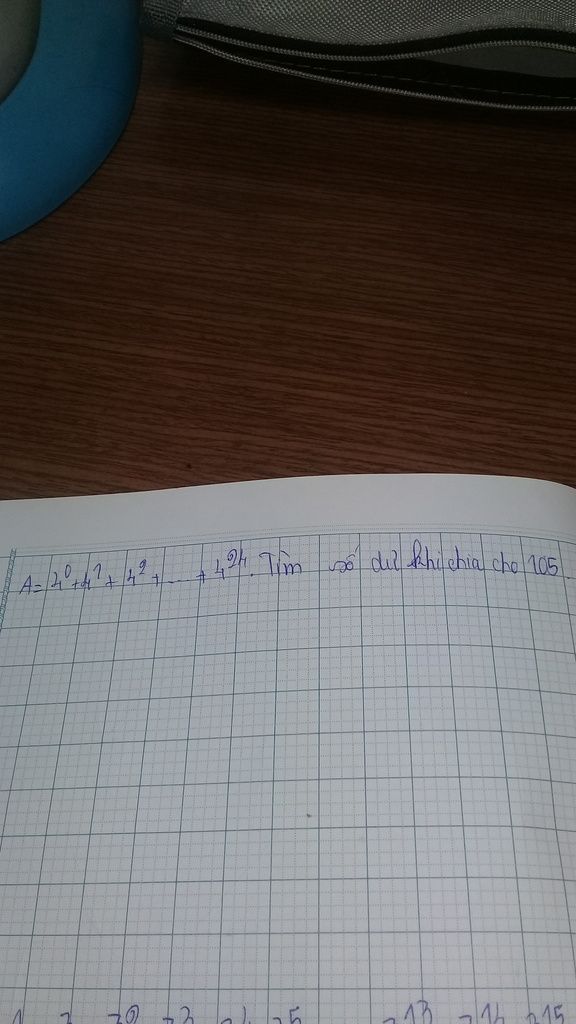 A = 4⁰ + 4¹ + 4² + ... + 4²⁴. Tìm số dư khi chia cho 105